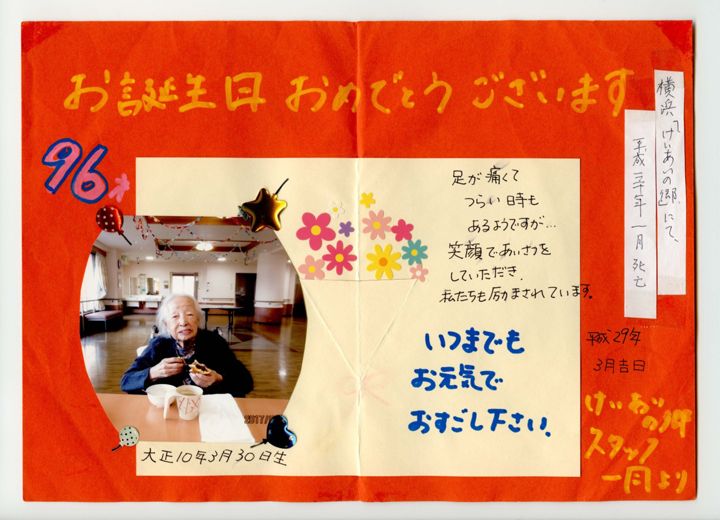 お誕生日 おめでとうございます
96才
足が痛くて
つらい日時も
あるようですが…
笑顔であいさつを
していただき、
私たちも励まされています。
いつまでも
お元気で
おすごし下さい。
大正10年3月30日生
横浜「けいあいの郷」にて、
平成三十年一月死亡
平成29年
3月吉日
けいあいの郷
スタッフ
一同より